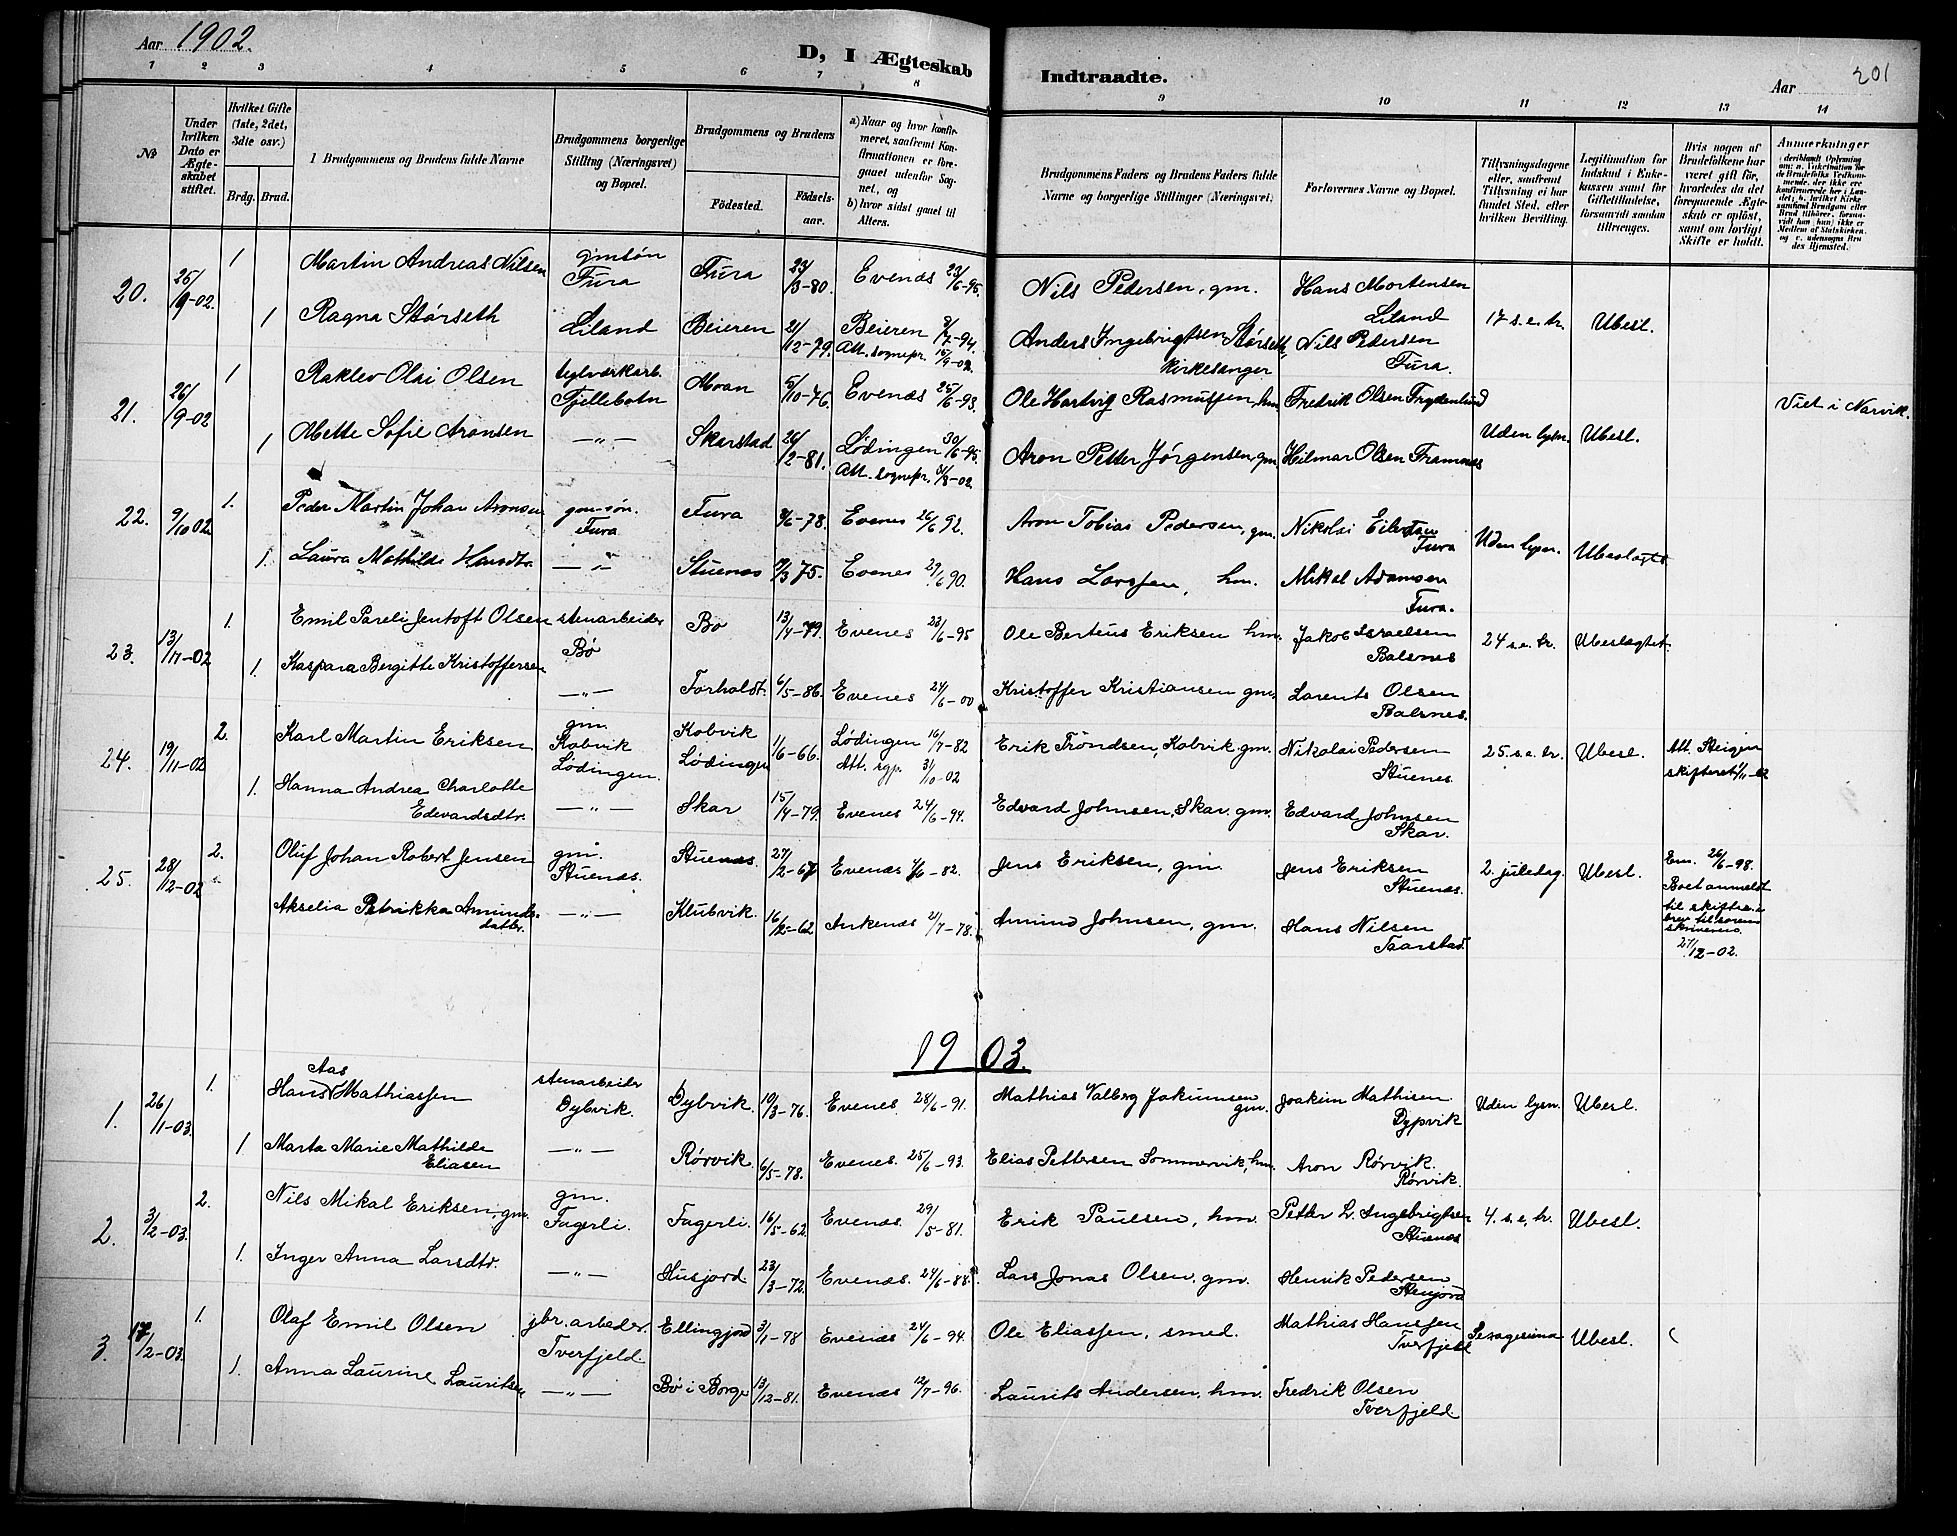 Aar 1902.
D, I Ægteskab Indtraadte.
Aar 201
1 2 3 4 5 6 7 8 9 10 11 12 13 14
No
Under hvilken Dato er Ægteskabet stiftet.
Hvilket Gifte (1ste, 2det, 3die osv.)
Brdg. Brud.
1 Brudgommens og Brudens fulde Navne
Brudgommens borgerlige Stilling (Næringsvei) og Bopæl.
Brudgommens og Brudens
Fødested. Fødselsaar.
a) Naar og hvor konfirmeret, saafremt Konfirmationen er foregaaet udenfor Sognet, og
b) hvor sidst gaaet til Alters.
Brudgommens Faders og Brudens Faders fulde Navne og borgerlige Stillinger (Næringsvei)
Forlovernes Navne og Bopæl.
Tillysningsdagene eller, saafremt Tillysning ei har fundet Sted, efter hvilken Bevilling.
Legitimation for Indskud i Enkekassen samt for Giftetilladelse, forsaavidt saadan tiltrænges.
Hvis nogen af Brudefolkene har været gift før, hvorledes da det foregaaende Ægteskab er opløst, samt om lovligt Skifte er holdt.
Anmærkninger
20. 26/9-02. 1 Martin Andreas Nilsen gmsøn Fura Fura 23/3-80. Evenæs 23/6-95. Nils Pedersen, gm. Hans Mortensen Liland 17 s.e.tr. Ubesl.
1 Ragna Størseth Liland Beieren 21/12-79. Beieren 8/7-94. Att. sognepr. 15/9-02. Anders Ingebrigtsen Størseth, Kirkesanger Nils Pedersen Fura.
21. 26/9-02 1 Raklev Olai Olsen teglværkarb. Fjellbotn Moan 5/10-76. Evenæs 25/6-93. Ole Hartvig Rasmussen, hm. Fredrik Olsen Frydenlund Uden lysn. Ubesl. Viet i Narvik.
1 Mette Sofie Aronsen -"- Skarstad 26/2-81. Lødingen 30/6-95. Att. sognepr. 4/8-02. Aron Petter Jørgensen, gm. Hilmar Olsen Framnes
22. 9/10 02 1. Peder Martin Johan Aronsen gm-søn. Fura Fura 8/6-78. Evenes 26/6 92. Aron Tobias Pedersen, gm. Nikolai Eilertsen Fura Uden lysn. Ubeslægtet
1. Laura Mathilde Hansdtr. -"- Stuenes 9/3 75. Evenes 29/6 90. Hans Larssen, hm. Mikal Adamsen Fura.
23. 13/11-02 1. Emil Pareli Jentoft Olsen stenarbeider Bø Bø 13/4-79. Evenes 23/6-95 Ole Berteus Eriksen hm. Jakob Israelsen Balsnes 24 s.e.tr. Ubeslægtet.
1. Kaspara Bergitte Kristoffersen -"- Forholdt. 6/5-86. Evenes 24/6-00 Kristoffer Kristiansen gm. Larents Olsen Balsnes.
24. 19/11-02 2. Karl Martin Eriksen gm. Kobvik Lødingen. Kobvik Lødingen 1/6-66. Lødingen 16/7-82 Att. sgp. 31/10-02 Erik Tröndsen, Kobvik gm. Nikolai Pedersen Stuenes 25. s.e.tr. Ubesl. Att. Steigen skifteret 1/11-02
1. Hanna Andrea Charlotte Edevardsdtr. -"- Skar 15/4-79. Evenes 24/6-94. Edvard Johnsen, Skar. gm. Edvard Johnsen Skar.
25. 28/12-02 2. Oluf Johan Robert Jensen gm. Stuenæs. Stuenæs. 27/2-67 Evenæs 4/6-82. Jens Eriksen, gm. Jens Eriksen Stuenæs. 2. juledag. Ubesl. Em. 26/6-98. Boet anmeldt til skifte i brev til sorenskriveren 27/12-02.
Akselia Petrikka Amundsdatter. -"- Klubvik. 16/2-62 Ankenæs 21/7-78. Amund Johnsen, gm. Hans Nilsen Taarstad.
1903.
1. 26/1-03. 1. Hans Aas Mathiassen stenarbeider Dybvik. Dybvik. 10/3-76. Evenes. 28/6-91. Mathias Valberg Jakumsen gm. Joakim Mathisen Dypvik Uden lysn. Ubesl.
1 Marta Marie Mathilde Eliasen -"- Rørvik. 6/5-78. Evenes. 25/6-93. Elias Pettersen Sommervik, hm. Aron Rørvik. Rørvik.
2. 3/2-03. 2. Nils Mikal Eriksen, gm. gm. Fagerli. Fagerli. 16/5-62. Evenæs. 29/5-81. Erik Paulsen, hm. Petter L. Ingebrigtsen Stuenæs 4. s.e.tr. Ubesl.
1. Inger Anna Larsdtr. -"- Husjord. 23/3-72. Evenæs. 24/6-88. Lars Jonas Olsen, gm. Henrik Pedersen Stenjord
3. 17/2-03. 1. Olaf Emil Olsen jbr. arbeder. Tverfjeld. Ellingjord 3/1-78 Evenæs 24/6-94. Ole Eliassen, smed. Mathias Hanssen Tverfjeld Sexagesima Ubesl.
1. Anna Laurine Lauritsen -"- Bø i Borge 13/12-81. Evenæs 12/7-96. Laurits Andersen, hm. Fredrik Olsen Tverfjeld.